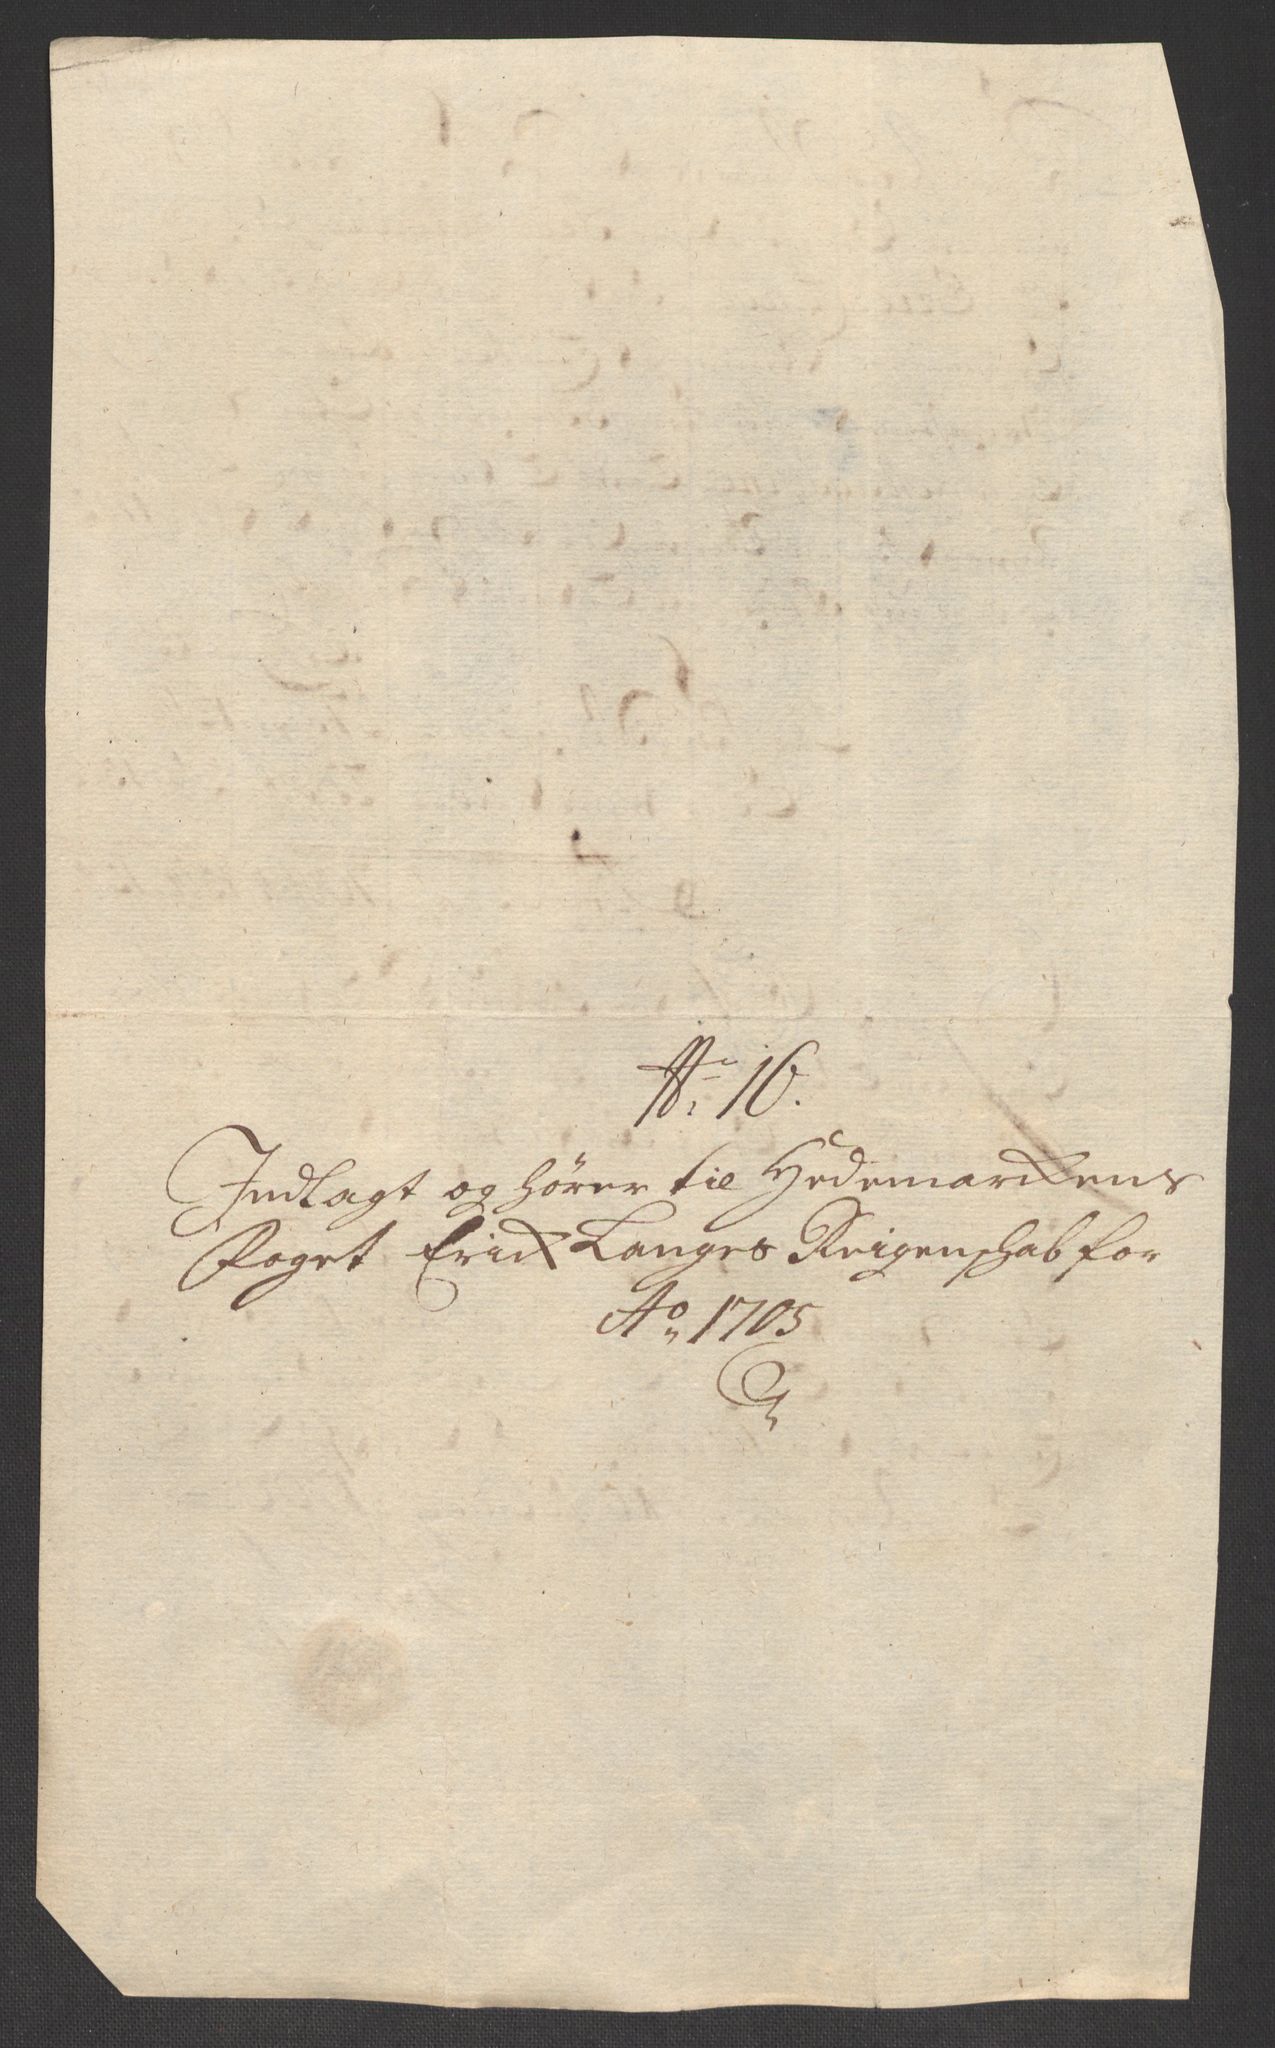 No. 16.
Indlagt og hörer til Hedemarckens
Foget Erick Langes Reigenschab for
Ao. 1705